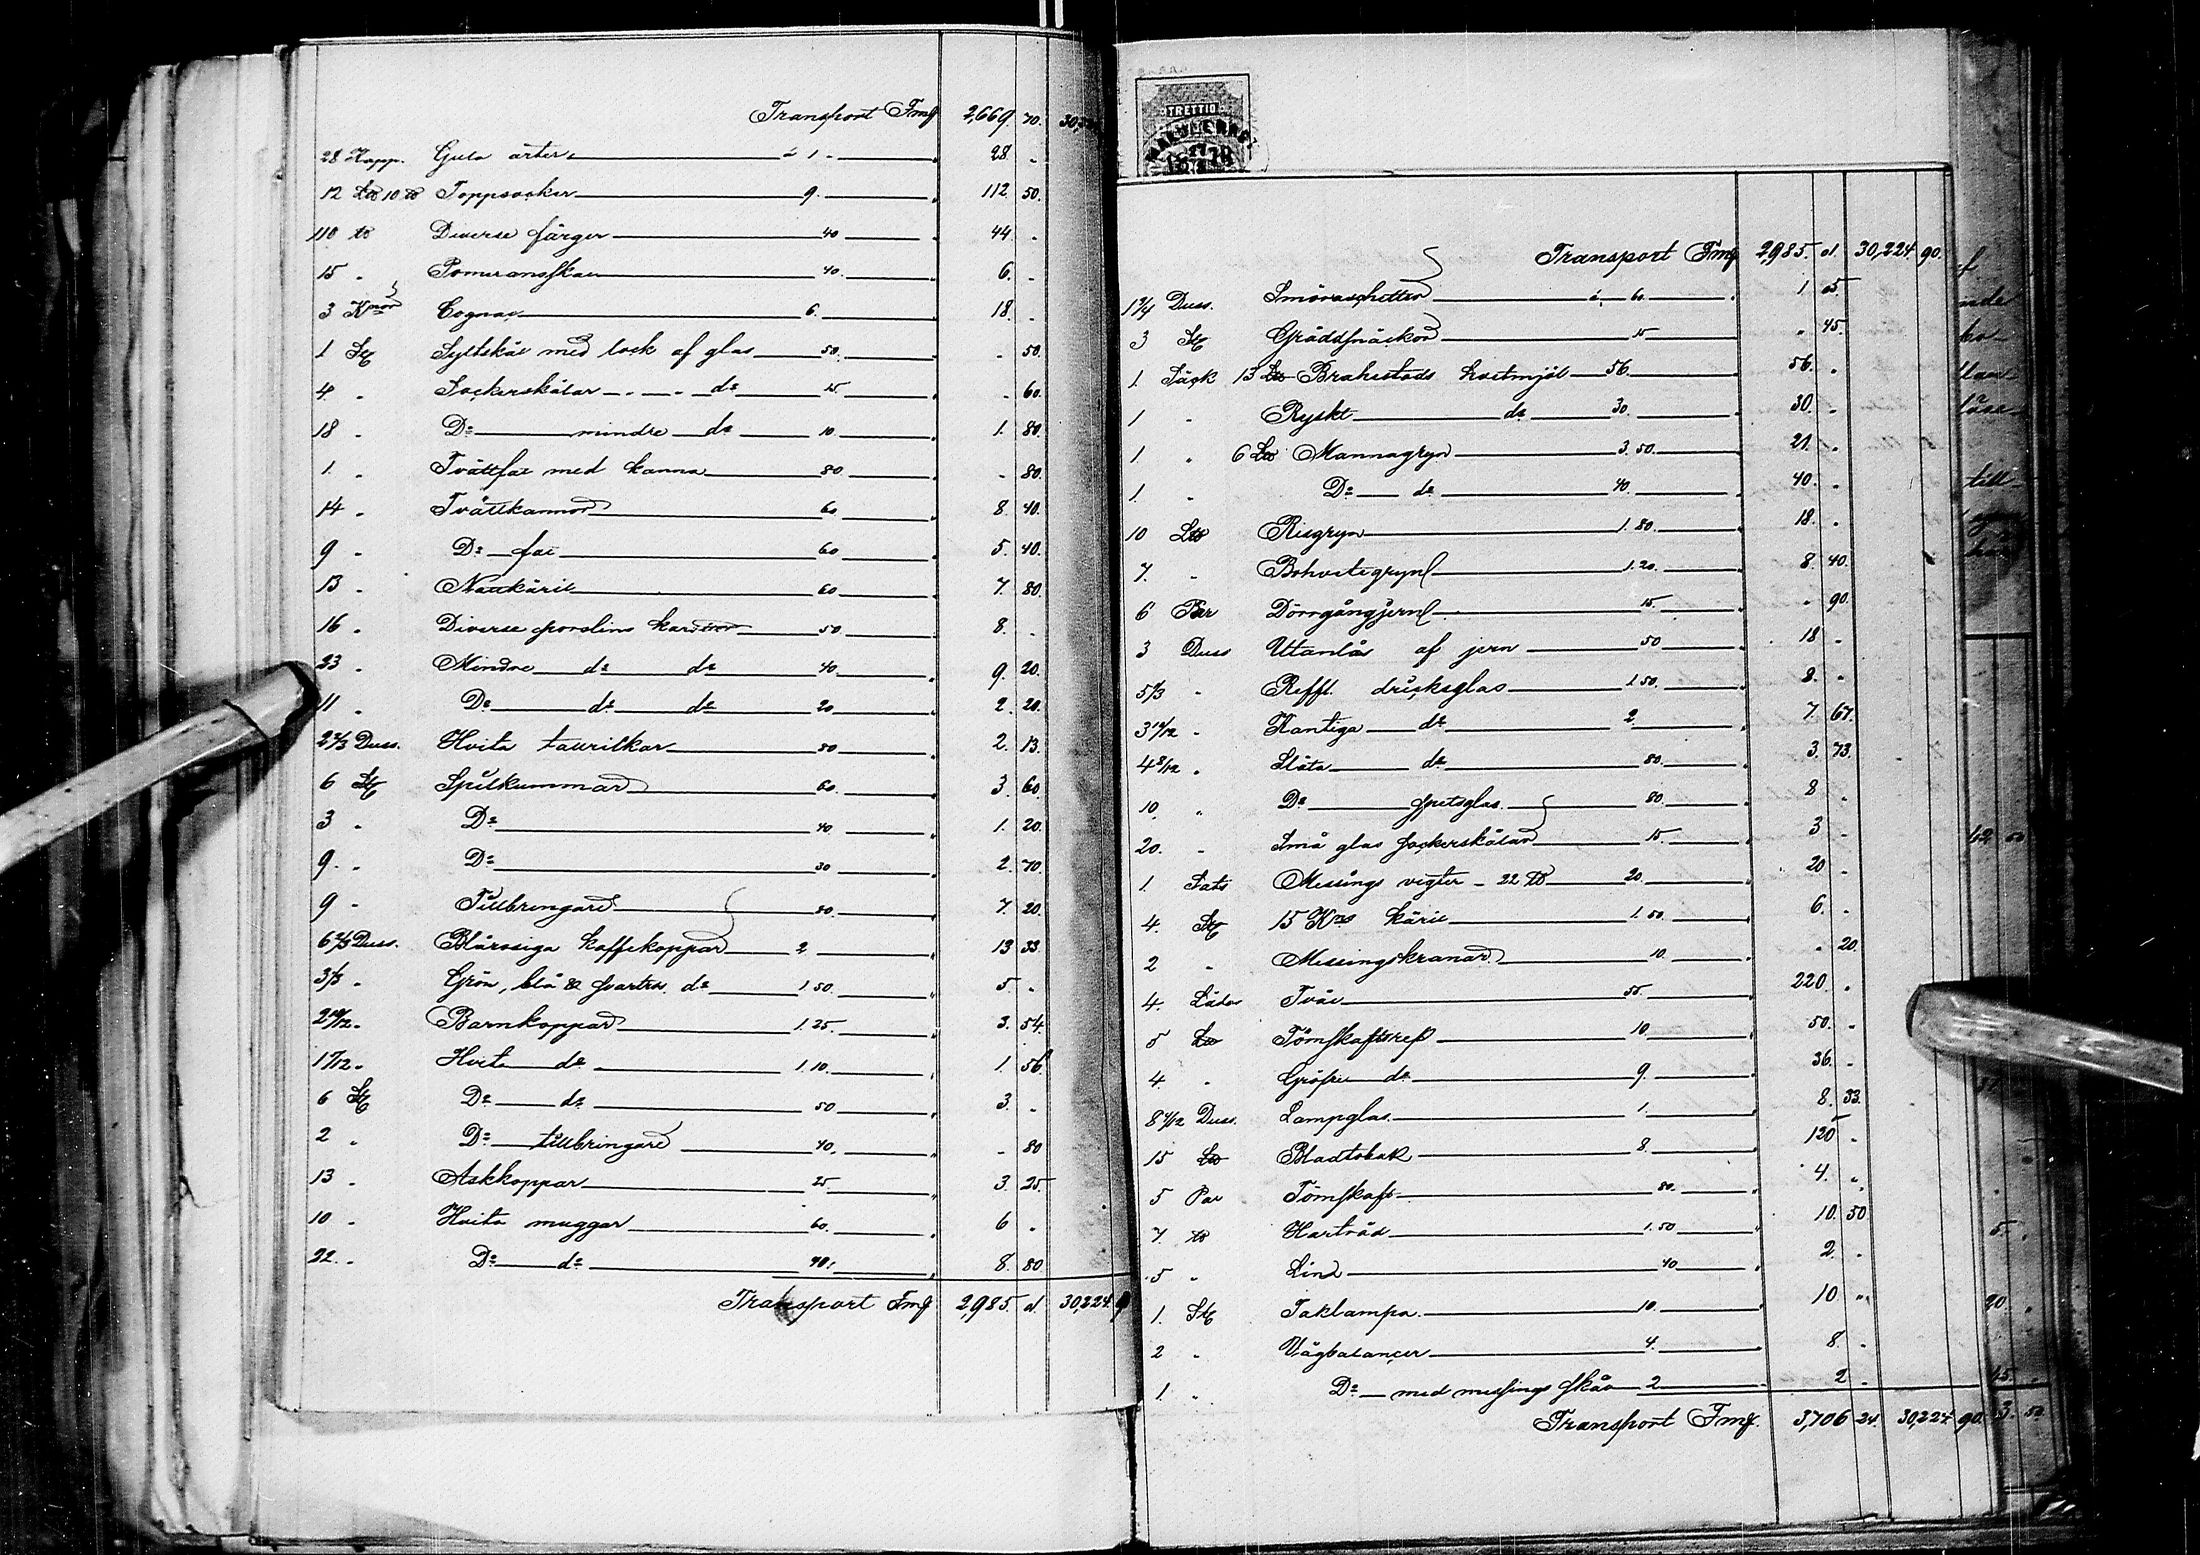 Transport Fmk 2,669. 70. 30,224
28 Kapp. Gula ärter à 1 - " 28 -
12 L℔ 10 ℔ Toppsocker 9. " 112 50.
110 ℔ Diverse färger 40 " 44 -
15 " Pomeransskal 40. " 6. -
3 Knor Cognac 6. " 18. -
1 St Syltskål med lock af glas 50. " - 50.
4 " Sockerskålar - " - do 15. " - 60.
18 " Do mindre do 10 " 1. 80.
1. " Tvättfat med kanna 80 " - 80.
14 " Tvättkannor 60 " 8. 40.
9 " Do fat 60 " 5. 40.
13 " Nattkärl 60 " 7. 80.
16 " Diverse porslins kar 50. " 8. -
23 " Mindre do do 40. " 9. 20.
11 " Do do do 20 " 2. 20.
2 2/3 Duss. Hvita taurikar 80 " 2. 13.
6 St Spilkummar 60. " 3. 60.
3 " Do 40. " 1. 20.
9. " Do 30 " 2. 70.
9 " Tillbringare 80. " 7. 20.
6 2/3 Duss. Blårosiga kaffekoppar 2 " 13 33.
3 1/3 " Grön, blå & svartra. do 1 50. " 5. -
2 10/12 " Barnkoppar 1. 25. " 3. 54.
1 5/12 " Hvita do 1 10. " 1. 56.
6 St Do do 50 " 3. -
2 " Do tillbringare 40. " - 80
13 " Askkoppar 25 " 3. 25.
10 " Hvita muggar 60. " 6 -
22. " Do do 40. " 8. 80.
Transport Fmk 2,985. 01 30,224. 9
TRETTIO
Transport Fmk 2,985. 01. 30,224 90.
1 3/4 Duss. Smöraschetter à. 60. " 1 05.
3 St Gräddsnäckor 15 " " 45.
1. Säck 13 L℔ Brahestads hvetmjöl 56. 56. "
1 " Ryskt do 30. 30. "
1 " 6 L℔ Mannagryn 3. 50. 21. "
1 " Do do 40. 40. "
10 L℔ Risgryn 1. 80. 18. "
7. " Bohvetegryn 1. 20. 8. 40.
6 Par Dörrgångjern 15. " 90.
3 Duss Utanlås af jern 50 18 "
5 1/3 " Reffl. dricksglas 1. 50. 8. "
3 10/12 " Kantiga do 2. 7. 67.
4 8/12 " Släta do 80. 3. 73.
10. " Do spetsglas. 80. 8 "
20. " Små glas sockerskålar 15. 3 "
1. Sats Messings vigter - 22 ℔ 20. 20 "
4. St 15 Kns kärl 1. 50. 6. "
2 " Messingskranar 10. " 20.
4. Lådor Tvål 55. 220. "
5 L℔ Tömskaftsref 10. 50. "
4. " Gröfre do 9. 36. "
8 4/12 Duss. Lampglas 1. 8. 33.
15 L℔ Bladtobak 8. 120 "
5 Par Tömskaft 80. 4. "
7. ℔ Hartråd 1. 50 10. 50
5 " Lind 40 2. "
1. St Taklampa. 10. 10 "
2 " Vågbalancer 4. 8. "
1 " Do med messings skål 2 2 "
Transport Fmk. 3,706 24. 30,224. 90.